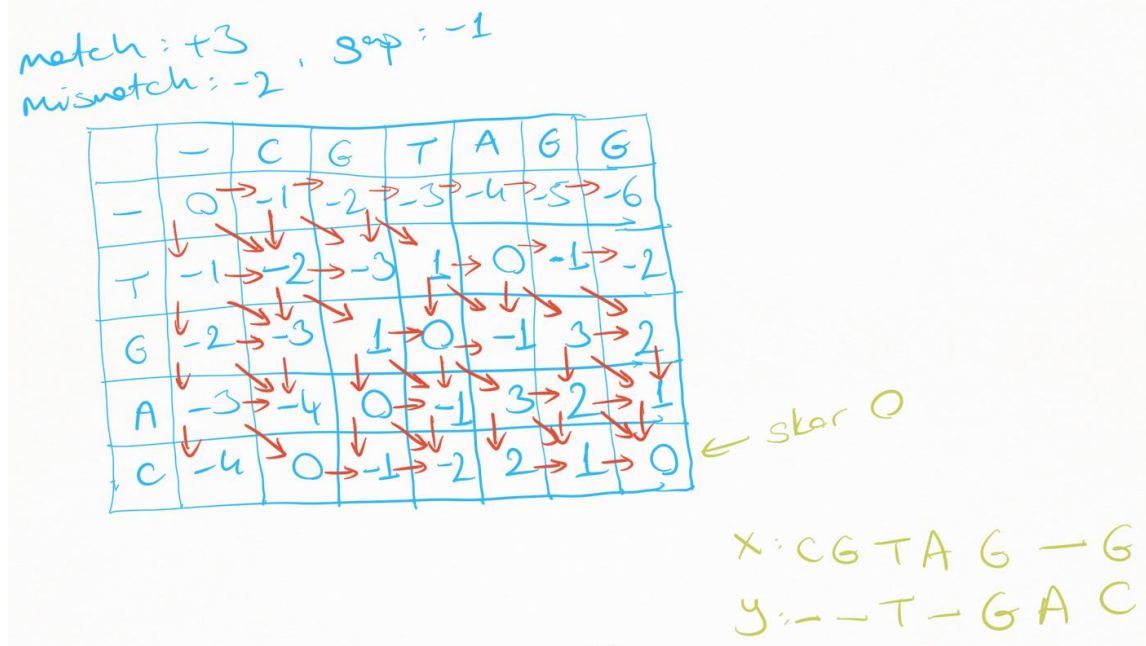 match : +3 , gap : -1
mismatch : -2
- C G T A G G
- 0 -1 -2 -3 -4 -5 -6
T -1 -2 -3 1 0 -1 -2
G -2 -3 1 0 -1 3 2
A -3 -4 0 -1 3 2 1
C -4 0 -1 -2 2 1 0
skor 0
X: C G T A G - G
y: - - T - G A C